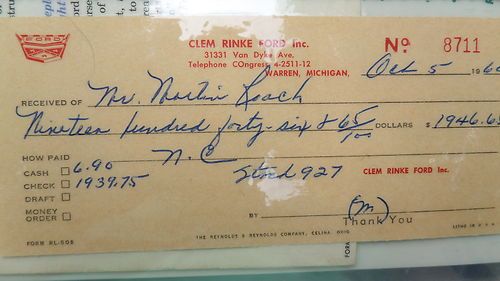 FORD
CLEM RINKE FORD Inc.
31331 Van Dyke Ave.
Telephone COngress 4-2511-12
WARREN, MICHIGAN,
No 8711
Oct 5 1960
RECEIVED OF Mr. Martin Roach
Nineteen hundred forty-six & 65/100 DOLLARS $1946.65
HOW PAID N.C
CASH 6.90 Stock 927 CLEM RINKE FORD Inc.
CHECK 1939.75
DRAFT
MONEY ORDER
BY (m)
Thank You
FORM RL-508
THE REYNOLDS & REYNOLDS COMPANY, CELINA, OHIO
LITHO IN U.S.A.